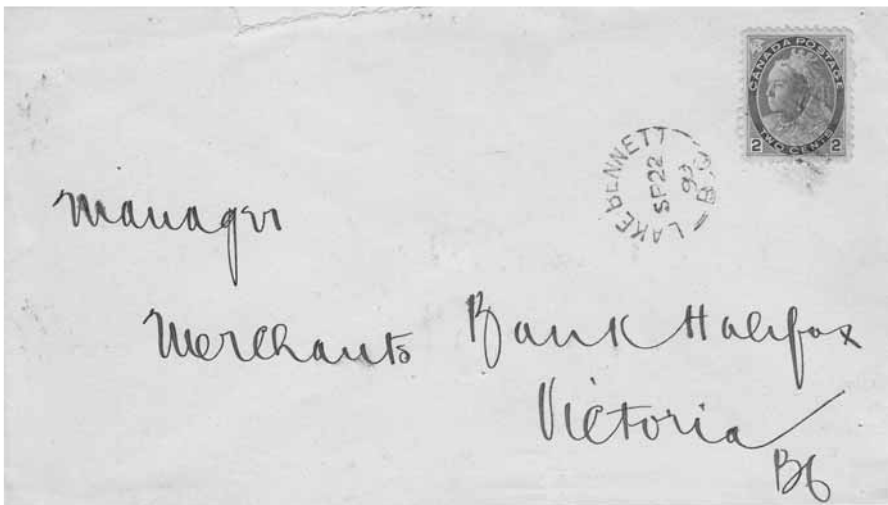 CANADA POSTAGE
2 TWO CENTS 2
LAKE BENNETT
SP 22
99
B.C.
Manager
Merchants Bank Halifax
Victoria
BC